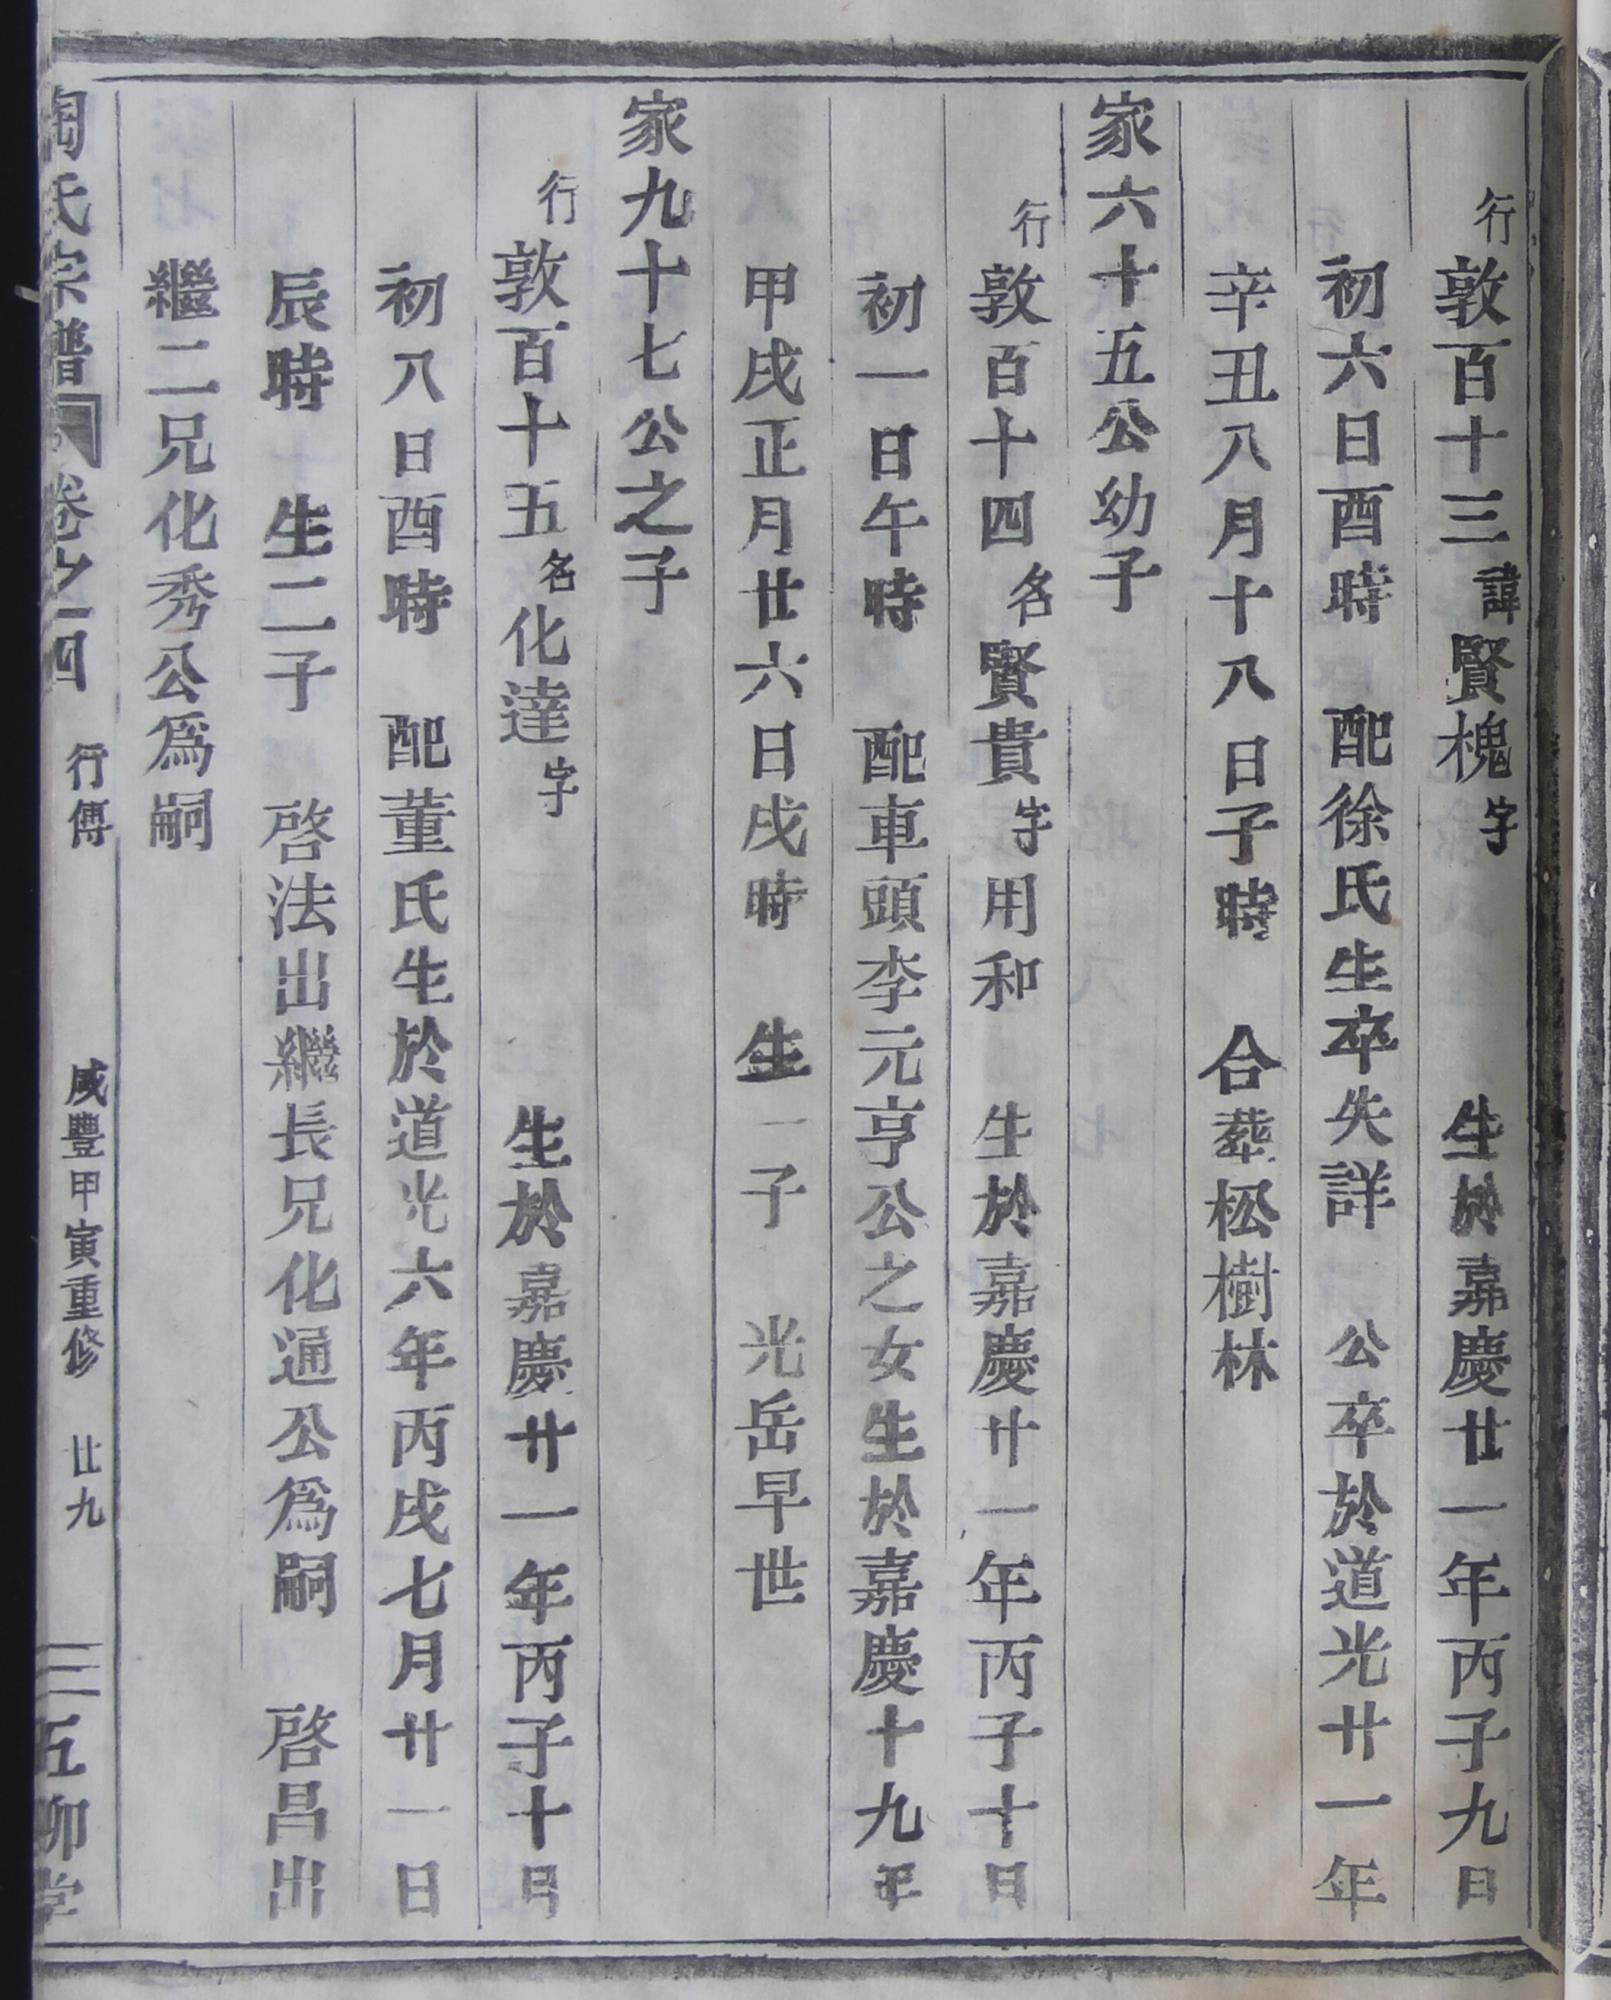 行敦百十三諱賢槐字 生於嘉慶廿一年丙子九月
初六日酉時 配徐氏生卒失詳 公卒於道光廿一年
辛丑八月十八日子時 合葬松樹林
家六十五公幼子
行敦百十四名賢貴字用和 生於嘉慶廿一年丙子十月
初一日午時 配車頭李元亨公之女生於嘉慶十九年
甲戌正月廿六日戌時 生一子 光岳早世
家九十七公之子
行敦百十五名化達字 生於嘉慶廿一年丙子十月
初八日酉時 配董氏生於道光六年丙戌七月廿一日
辰時 生二子 啓法出繼長兄化通公爲嗣 啓昌出
繼二兄化秀公爲嗣
陶氏宗譜 卷之四 行傳 咸豐甲寅重修 廿九 五柳堂